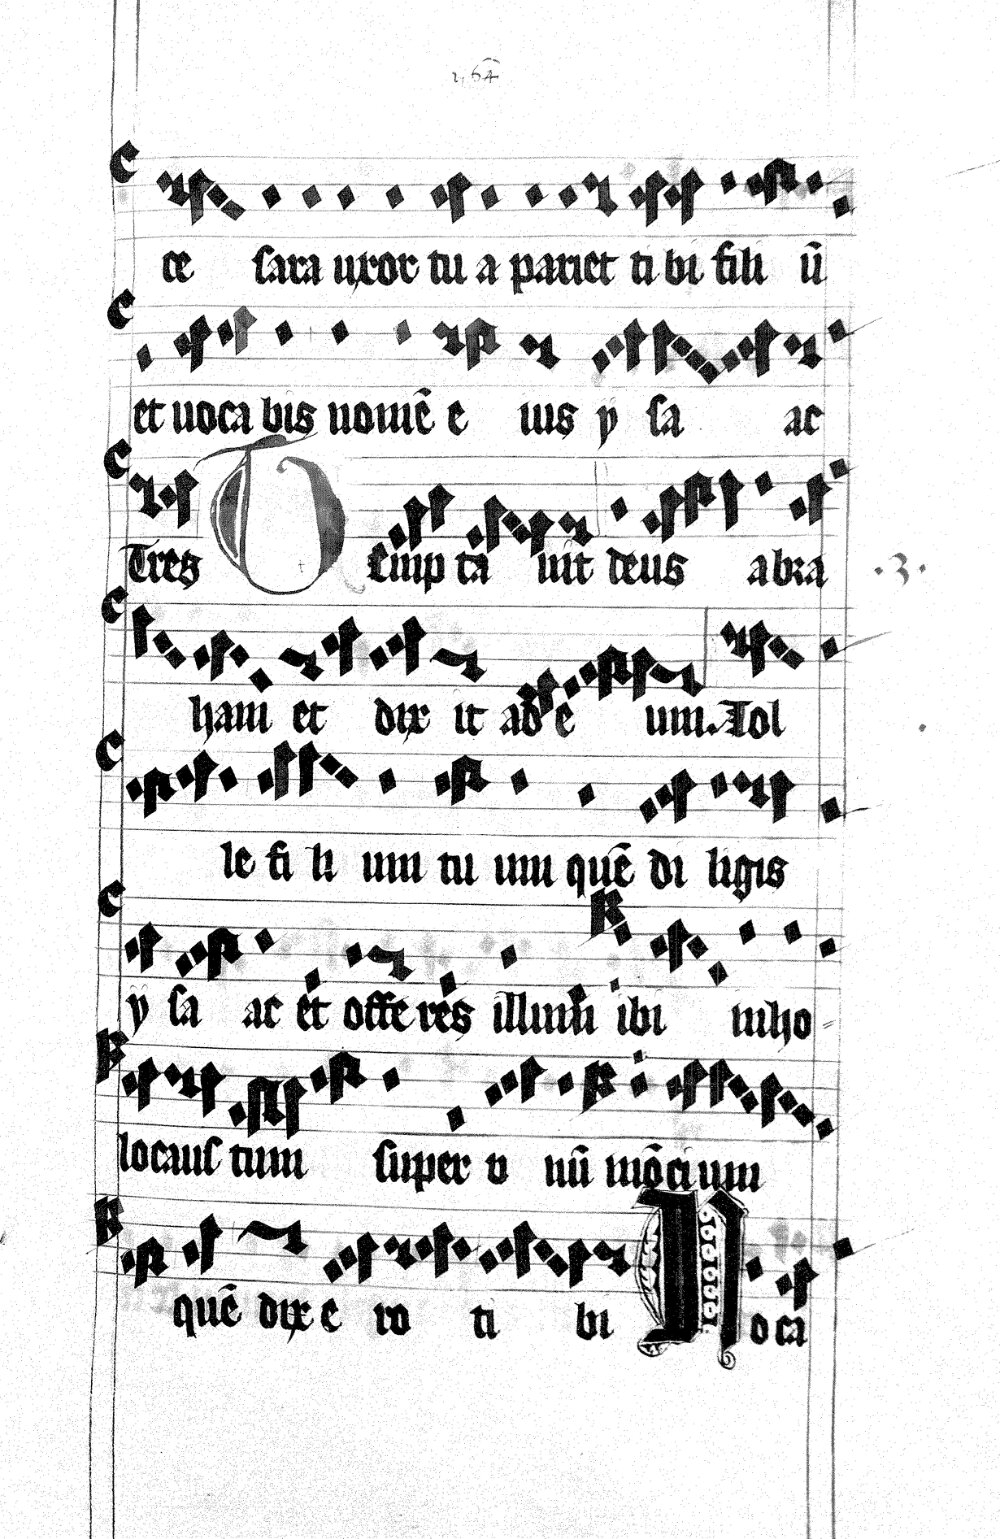 ce sara uxor tu a pariet ti bi fili ū
et uoca bis nomē e ius ẏ sa ac
Tres Temp ta uit deus abra
.3.
ham et dix it ad e um. Tol
le fi li um tu um quē di ligis
ẏ sa ac et offe res illum ibi in ho
locaus tum super v nū mōci um
quē dix e ro ti bi Uoca